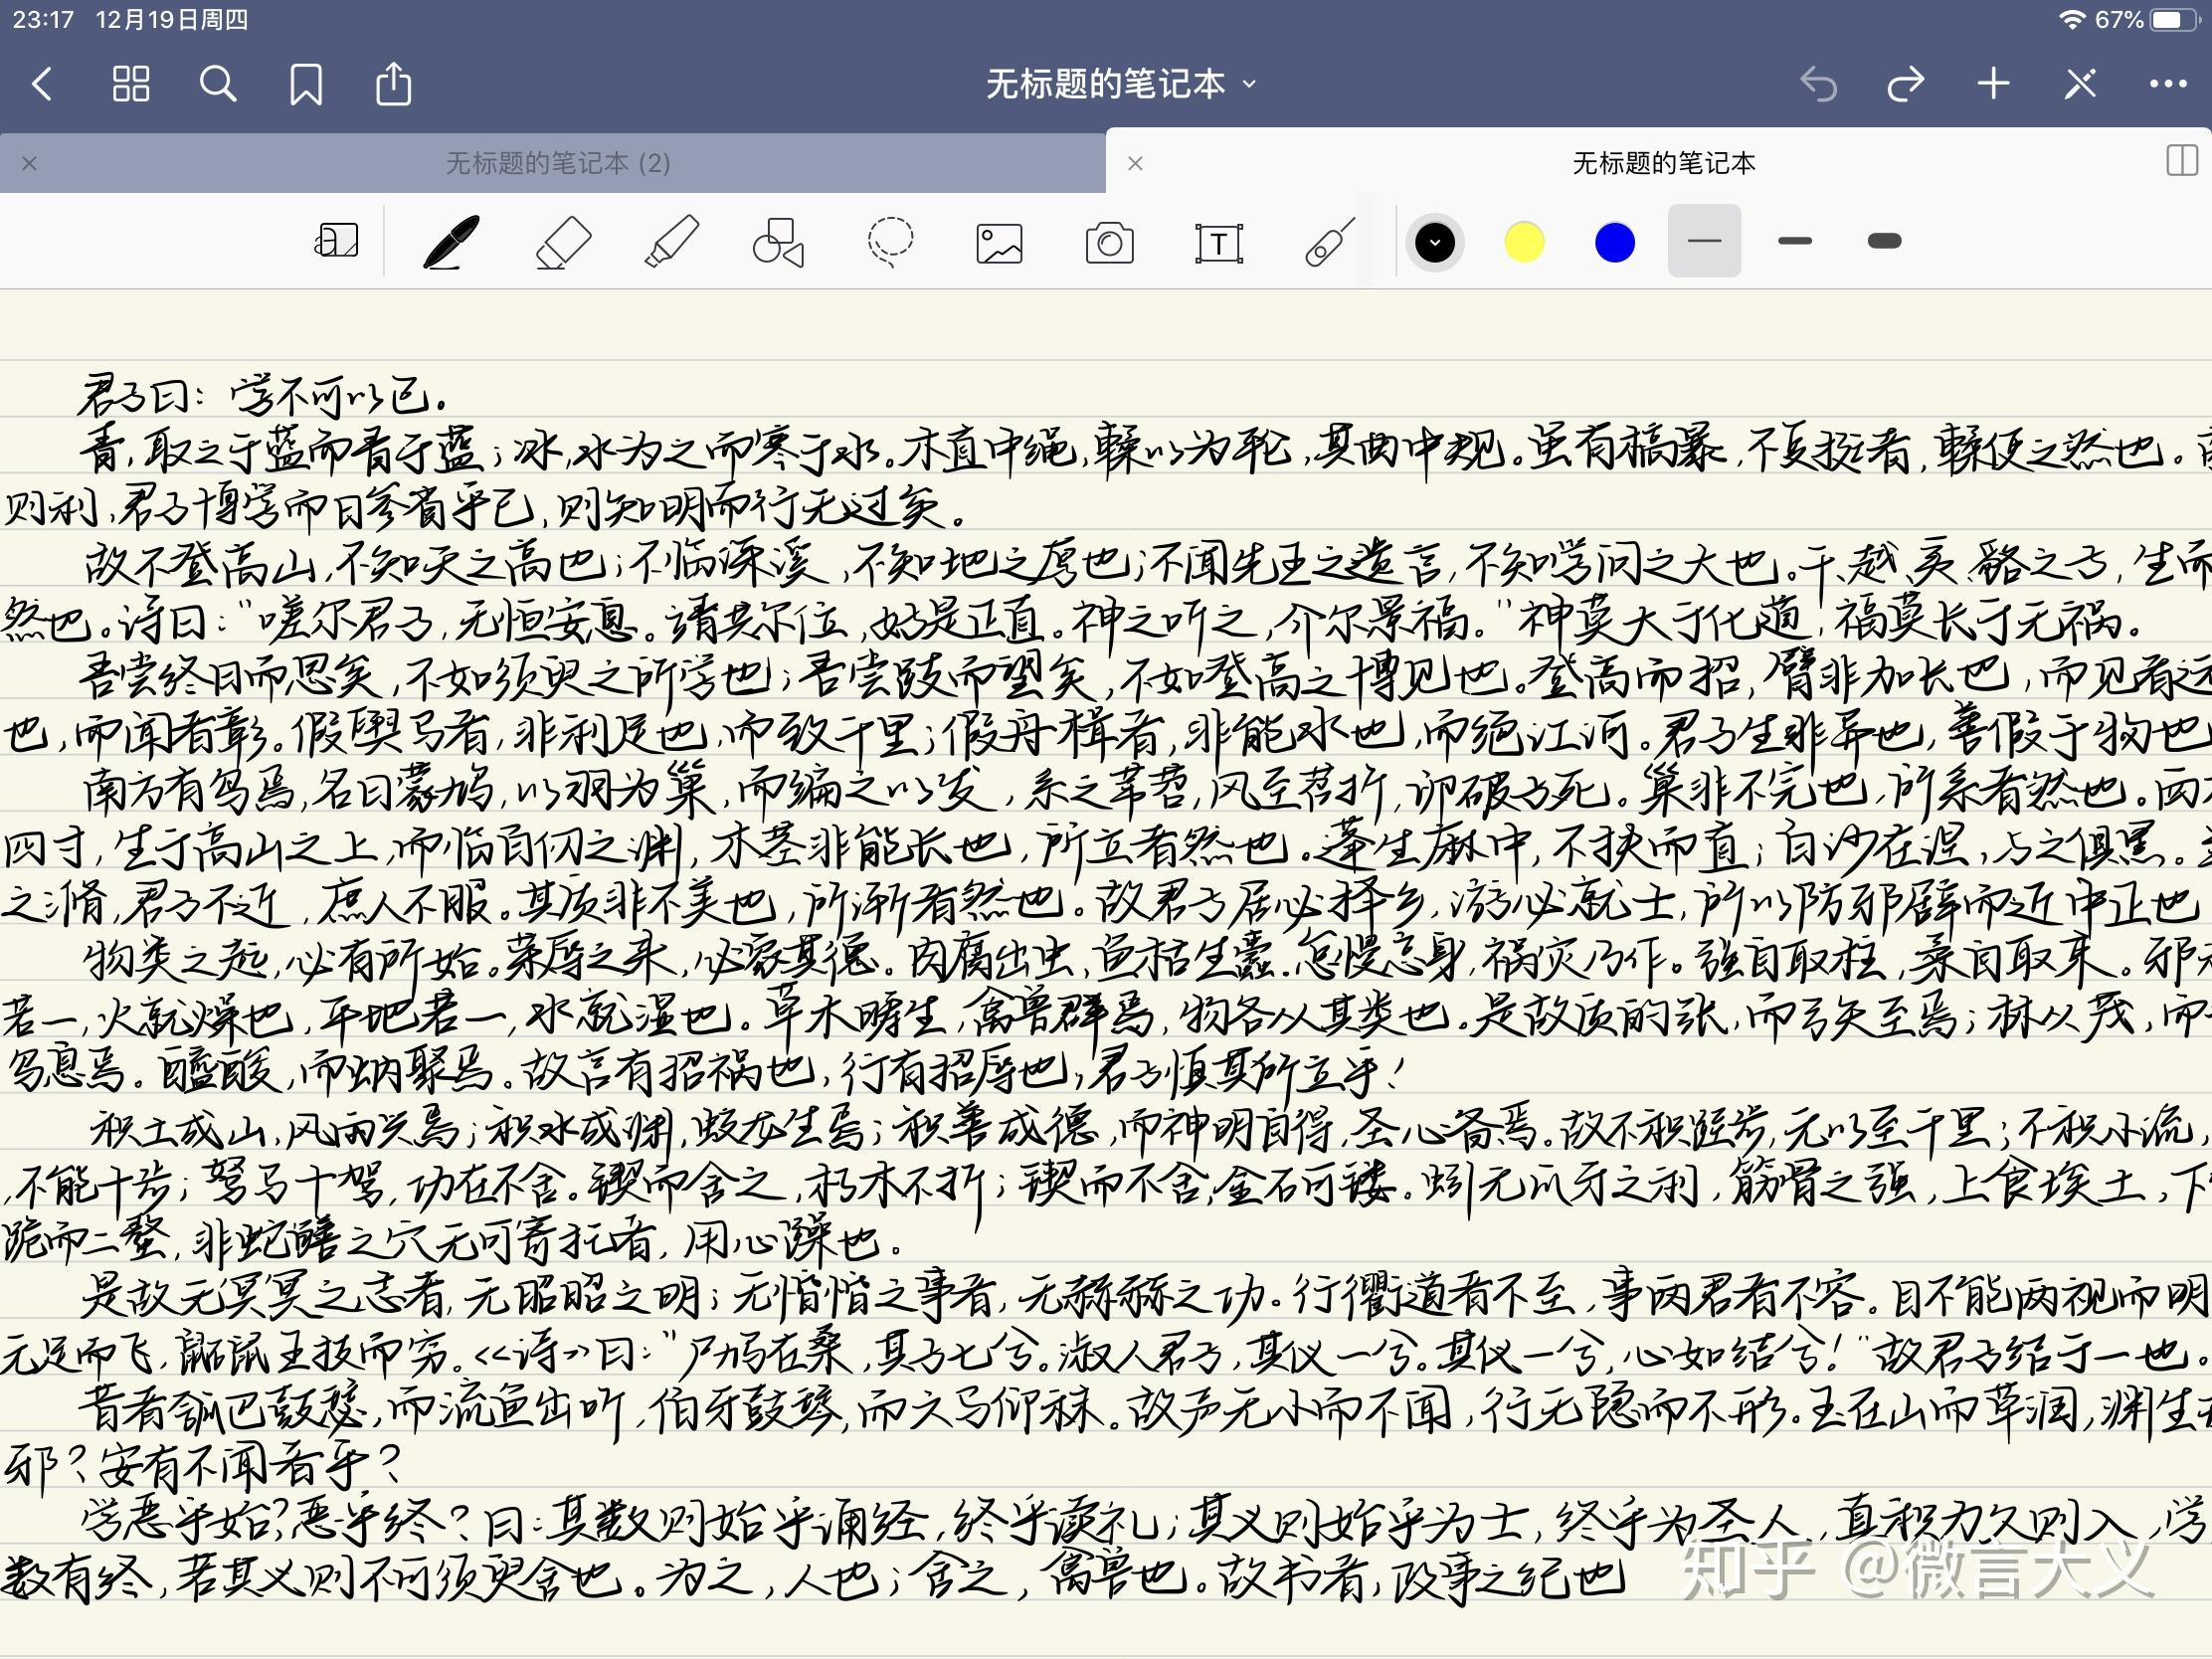 23:17 12月19日周四
67%
无标题的笔记本
无标题的笔记本 (2)
无标题的笔记本
T
君子曰：学不可以已。
青，取之于蓝而青于蓝；冰，水为之而寒于水。木直中绳，輮以为轮，其曲中规。虽有槁暴，不复挺者，輮使之然也。
则利，君子博学而日参省乎己，则知明而行无过矣。
故不登高山，不知天之高也；不临深溪，不知地之厚也；不闻先王之遗言，不知学问之大也。干、越、夷、貉之子，生而
然也。诗曰：“嗟尔君子，无恒安息。靖共尔位，好是正直。神之听之，介尔景福。”神莫大于化道，福莫长于无祸。
吾尝终日而思矣，不如须臾之所学也；吾尝跂而望矣，不如登高之博见也。登高而招，臂非加长也，而见者远
也，而闻者彰。假舆马者，非利足也，而致千里；假舟楫者，非能水也，而绝江河。君子生非异也，善假于物也
南方有鸟焉，名曰蒙鸠，以羽为巢，而编之以发，系之苇苕，风至苕折，卵破子死。巢非不完也，所系者然也。西方
四寸，生于高山之上，而临百仞之渊，木茎非能长也，所立者然也。蓬生麻中，不扶而直；白沙在涅，与之俱黑。
之滫，君子不近，庶人不服。其质非不美也，所渐者然也。故君子居必择乡，游必就士，所以防邪辟而近中正也
物类之起，必有所始。荣辱之来，必象其德。肉腐出虫，鱼枯生蠹。怠慢忘身，祸灾乃作。强自取柱，柔自取束。邪
若一，火就燥也，平地若一，水就湿也。草木畴生，禽兽群焉，物各从其类也。是故质的张，而弓矢至焉；林从茂，而
鸟息焉。醯酸，而蚋聚焉。故言有招祸也，行有招辱也，君子慎其所立乎！
积土成山，风雨兴焉；积水成渊，蛟龙生焉；积善成德，而神明自得，圣心备焉。故不积跬步，无以至千里；不积小流，
，不能十步；驽马十驾，功在不舍。锲而舍之，朽木不折；锲而不舍，金石可镂。蚓无爪牙之利，筋骨之强，上食埃土，下
跪而二螯，非蛇鳝之穴无可寄托者，用心躁也。
是故无冥冥之志者，无昭昭之明；无惛惛之事者，无赫赫之功。行衢道者不至，事两君者不容。目不能两视而明
无足而飞，鼫鼠五技而穷。《诗》曰：“尸鸠在桑，其子七兮。淑人君子，其仪一兮。其仪一兮，心如结兮！”故君子结于一也。
昔者瓠巴鼓瑟，而流鱼出听，伯牙鼓琴，而六马仰秣。故声无小而不闻，行无隐而不形。玉在山而草润，渊生
邪？安有不闻者乎？
学恶乎始？恶乎终？曰：其数则始乎诵经，终乎读礼；其义则始乎为士，终乎为圣人，真积力久则入，学
数有终，若其义则不可须臾舍也。为之，人也；舍之，禽兽也。故书者，政事之纪也
知乎 @微言大义